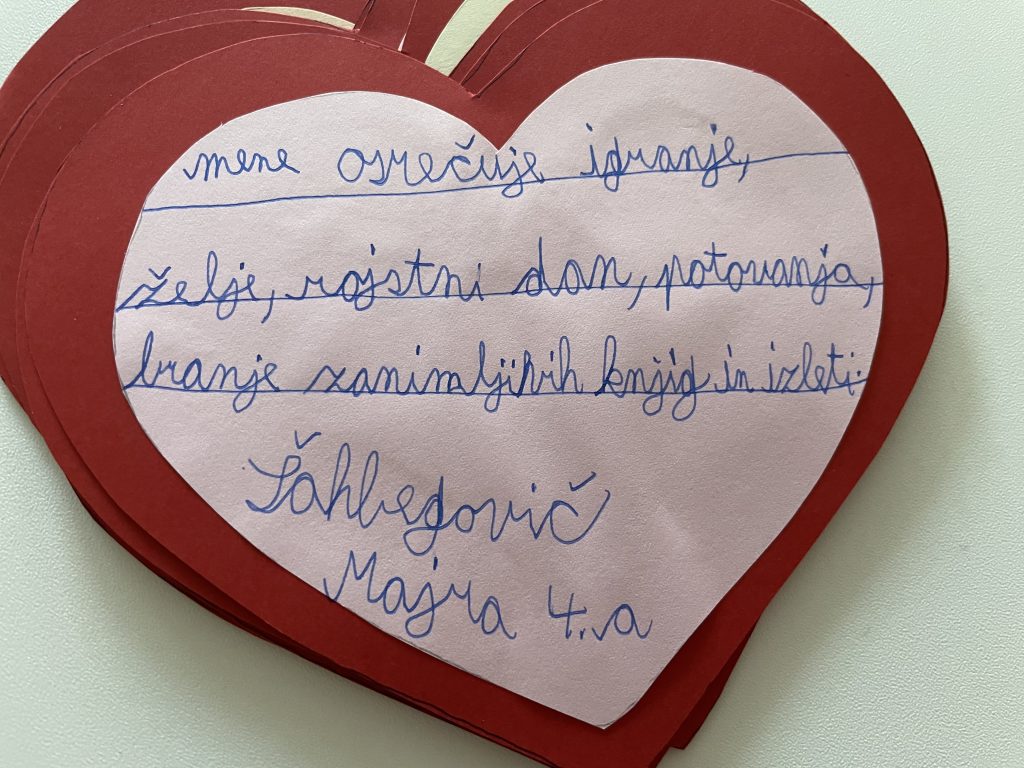 mene osrečuje igranje,
želje, rojstni dan, potovanja,
branje zanimljivih knjig in izleti.
Šahbegovič
Majra 4.a